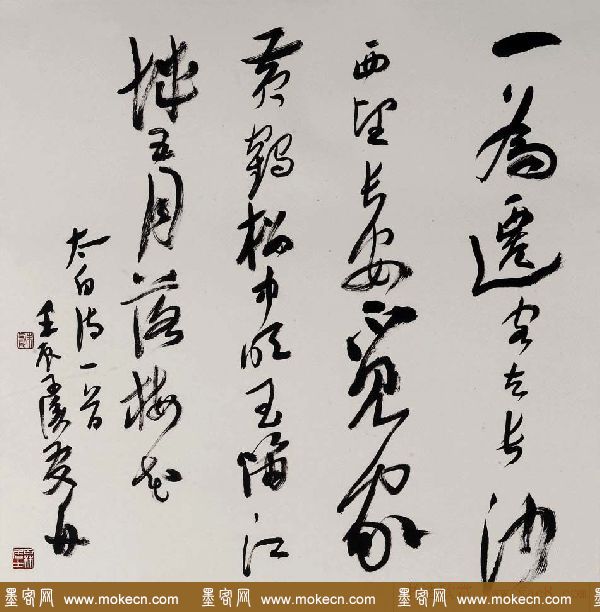 一為遷客去長沙
西望長安不見家
黃鶴樓中吹玉笛江
城五月落梅花
太白詩一首
壬辰
www.mokecn.com 墨客网 www.mokecn.com 墨客网 www.mokecn.com